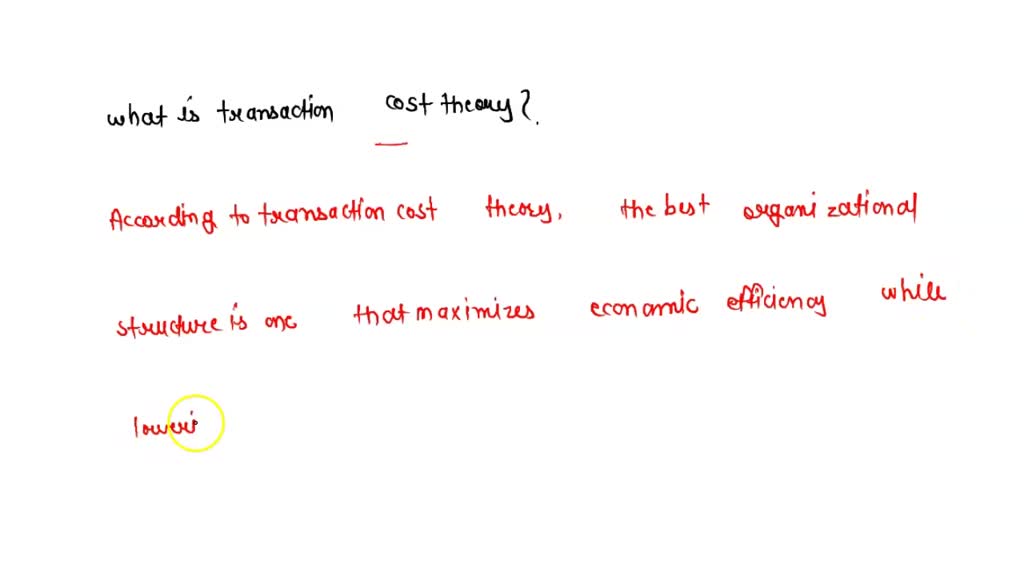 what is transaction cost theory?.
According to transaction cost theory, the best organizational
structure is one that maximizes economic efficiency while
loweri